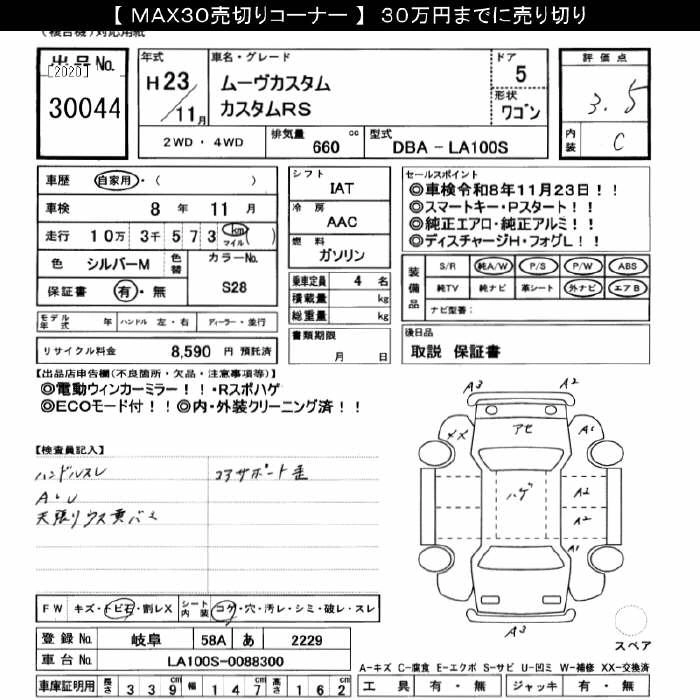 【 MAX30売切りコーナー 】 30万円までに売り切り
(複合機)対応用紙
出品No.
[2020]
30044
年式
H23
11月
車名・グレード
ムーヴカスタム
カスタムRS
ドア
5
形状
ワゴン
評価点
3.5
内装
C
2WD・4WD
排気量 660 cc
型式 DBA - LA100S
車歴 自家用・( )
車検 8年 11月
走行 10万 3千 5 7 3 km マイル ( )
色 シルバーM 色替 カラーNo.
S28
保証書 有・無
シフト
IAT
冷房
AAC
燃料
ガソリン
乗車定員 4 名
積載量 kg
総重量 kg
書類期限
月 日
セールスポイント
◎車検令和8年11月23日！！
◎スマートキー・Pスタート！！
◎純正エアロ・純正アルミ！！
◎ディスチャージH・フォグL！！
装備品
S/R 純A/W P/S P/W ABS
純TV 純ナビ 革シート 外ナビ エアB
ナビ型番：
モデル年式 年 ハンドル 左・右 ディーラー・並行
リサイクル料金 8,590 円 預託済
後日品
取説 保証書
【出品店申告欄(不良箇所・欠品・注意事項等)】
◎電動ウィンカーミラー！！・Rスポハゲ
◎ECOモード付！！◎内・外装クリーニング済！！
【検査員記入】
ハンドルスレ
コアサポート歪
A・U
天張りウス黄バミ
A3
A2
アセ
A1
××
ハゲ
A2
A2
A1
A3
スペア
FW キズ・トビ石・割レX シート内装 コゲ・穴・汚レ・シミ・破レ・スレ
登録No. 岐阜 58A あ 2229
車台No. LA100S-0088300
A-キズ C-腐食 E-エクボ S-サビ U-凹ミ W-補修 XX-交換済
車庫証明用 長さ 3 3 9 cm 幅 1 4 7 cm 高さ 1 6 2 cm
工具 有・無 ジャッキ 有・無